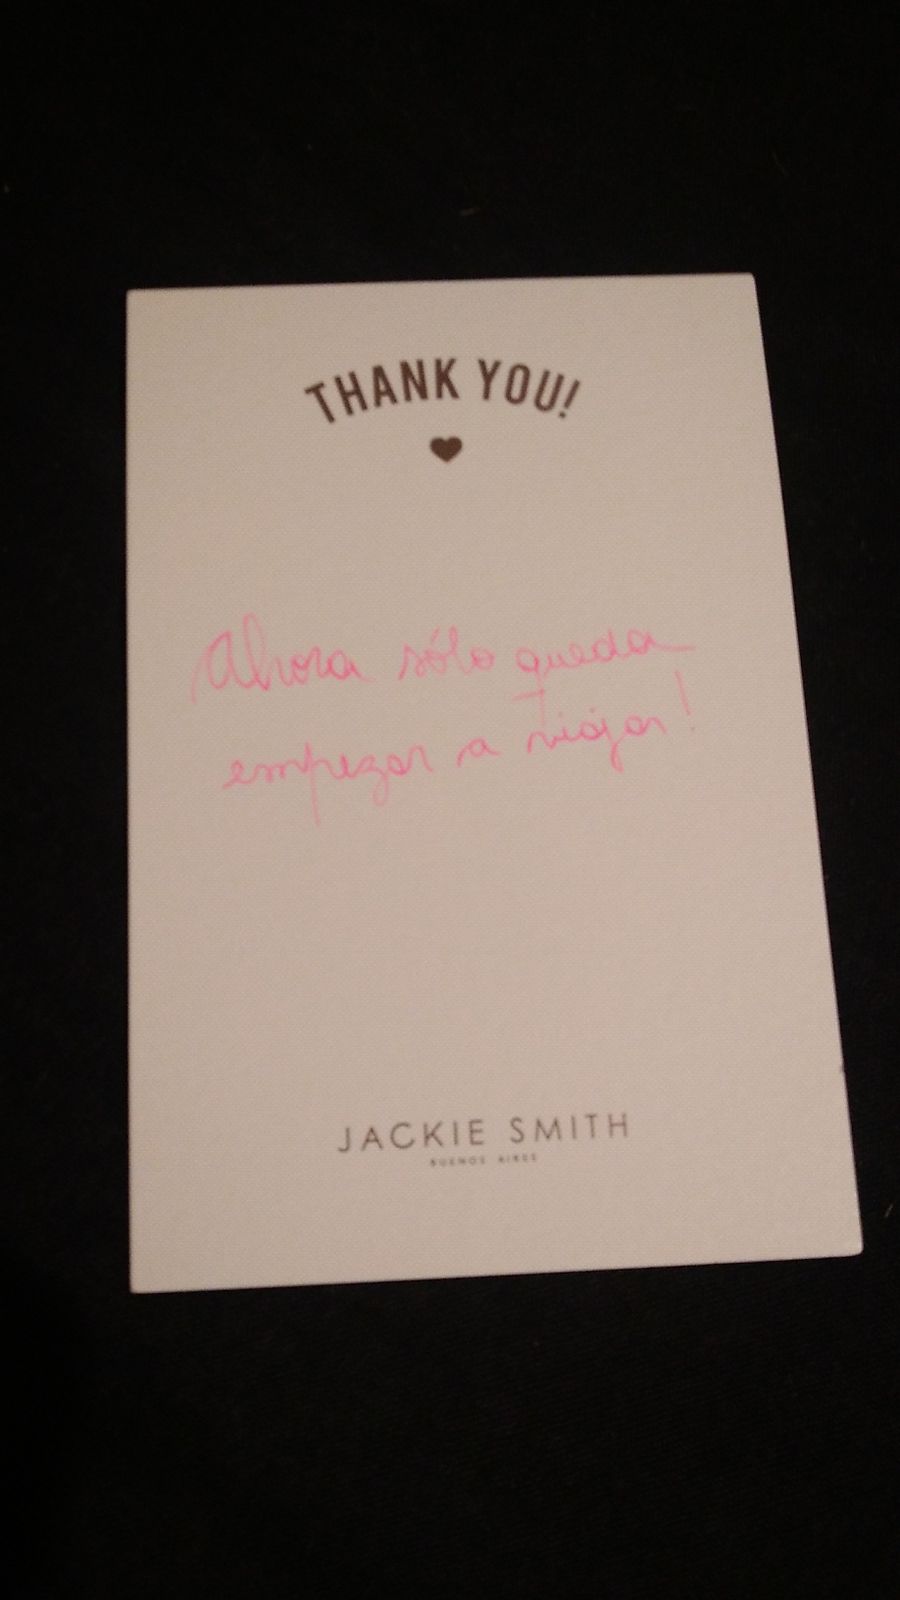 THANK YOU!
Ahora sólo queda
empezar a viajar!
JACKIE SMITH
BUENOS AIRES